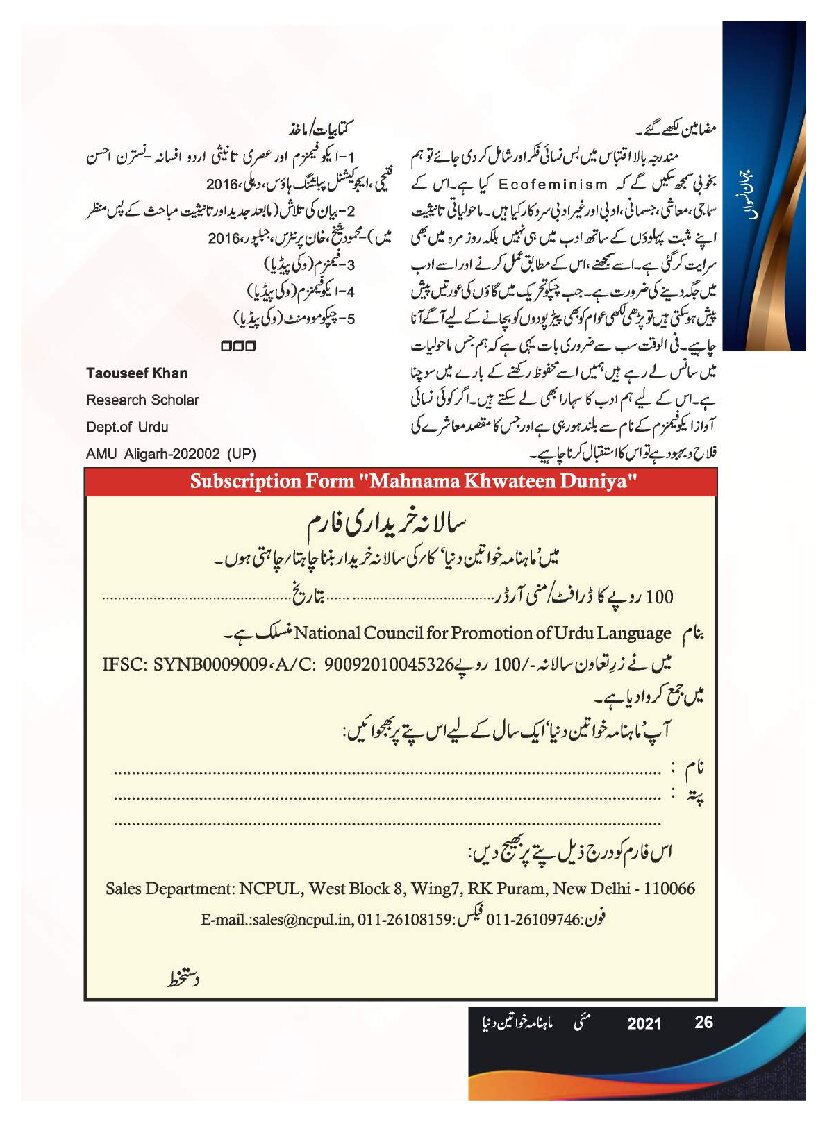 جہان نسواں
مضامین لکھے گئے۔
مندرجہ بالا اقتباس میں بس نسائی فکر اور شامل کر دی جائے تو ہم
بخوبی سمجھ سکیں گے کہ Ecofeminism کیا ہے۔ اس کے
سماجی، معاشی، جسمانی، ادبی اور غیر ادبی سروکار کیا ہیں۔ ماحولیاتی تانیثیت
اپنے مثبت پہلوؤں کے ساتھ ادب میں ہی نہیں بلکہ روز مرہ میں بھی
سرایت کر گئی ہے۔ اسے سمجھنے، اس کے مطابق عمل کرنے اور اسے ادب
میں جگہ دینے کی ضرورت ہے۔ جب چپکو تحریک میں گاؤں کی عورتیں پیش
پیش ہو سکتی ہیں تو پڑھی لکھی عوام کو بھی پیڑ پودوں کو بچانے کے لیے آگے آنا
چاہیے۔ فی الوقت سب سے ضروری بات یہی ہے کہ ہم جس ماحولیات
میں سانس لے رہے ہیں ہمیں اسے محفوظ رکھنے کے بارے میں سوچنا
ہے۔ اس کے لیے ہم ادب کا سہارا بھی لے سکتے ہیں۔ اگر کوئی نسائی
آواز ایکوفیمنزم کے نام سے بلند ہو رہی ہے اور جس کا مقصد معاشرے کی
فلاح و بہبود ہے تو اس کا استقبال کرنا چاہیے۔
کتابیات/ماخذ
1- ایکوفیمنزم اور عصری تانیثی اردو افسانہ - نسترن احسن
فتیحی، ایجوکیشنل پبلشنگ ہاؤس، دہلی، 2016
2- بیان کی تلاش (مابعد جدید اور تانیثیت مباحث کے پس منظر
میں) - محمود شیخ، خان پرنٹرس، جبلپور، 2016
3- فیمنزم (وکی پیڈیا)
4- ایکوفیمنزم (وکی پیڈیا)
5- چپکو موومنٹ (وکی پیڈیا)
□□□
Taouseef Khan
Research Scholar
Dept.of Urdu
AMU Aligarh-202002 (UP)
Subscription Form "Mahnama Khwateen Duniya"
سالانہ خریداری فارم
میں 'ماہنامہ خواتین دنیا' کا/کی سالانہ خریدار بننا چاہتا/چاہتی ہوں۔
100 روپے کا ڈرافٹ/منی آرڈر.......................................... بتاریخ..........................................
بنام National Council for Promotion of Urdu Language منسلک ہے۔
میں نے زرِ تعاون سالانہ -/100 روپے IFSC: SYNB0009009، A/C: 90092010045326
میں جمع کروا دیا ہے۔
آپ 'ماہنامہ خواتین دنیا' ایک سال کے لیے اس پتے پر بھجوائیں:
نام : ..........................................................................................
پتہ : ..........................................................................................
..........................................................................................
اس فارم کو درج ذیل پتے پر بھیج دیں:
Sales Department: NCPUL, West Block 8, Wing7, RK Puram, New Delhi - 110066
فون:011-26109746 فیکس:011-26108159 ,E-mail.:sales@ncpul.in
دستخط
26 2021 مئی ماہنامہ خواتین دنیا